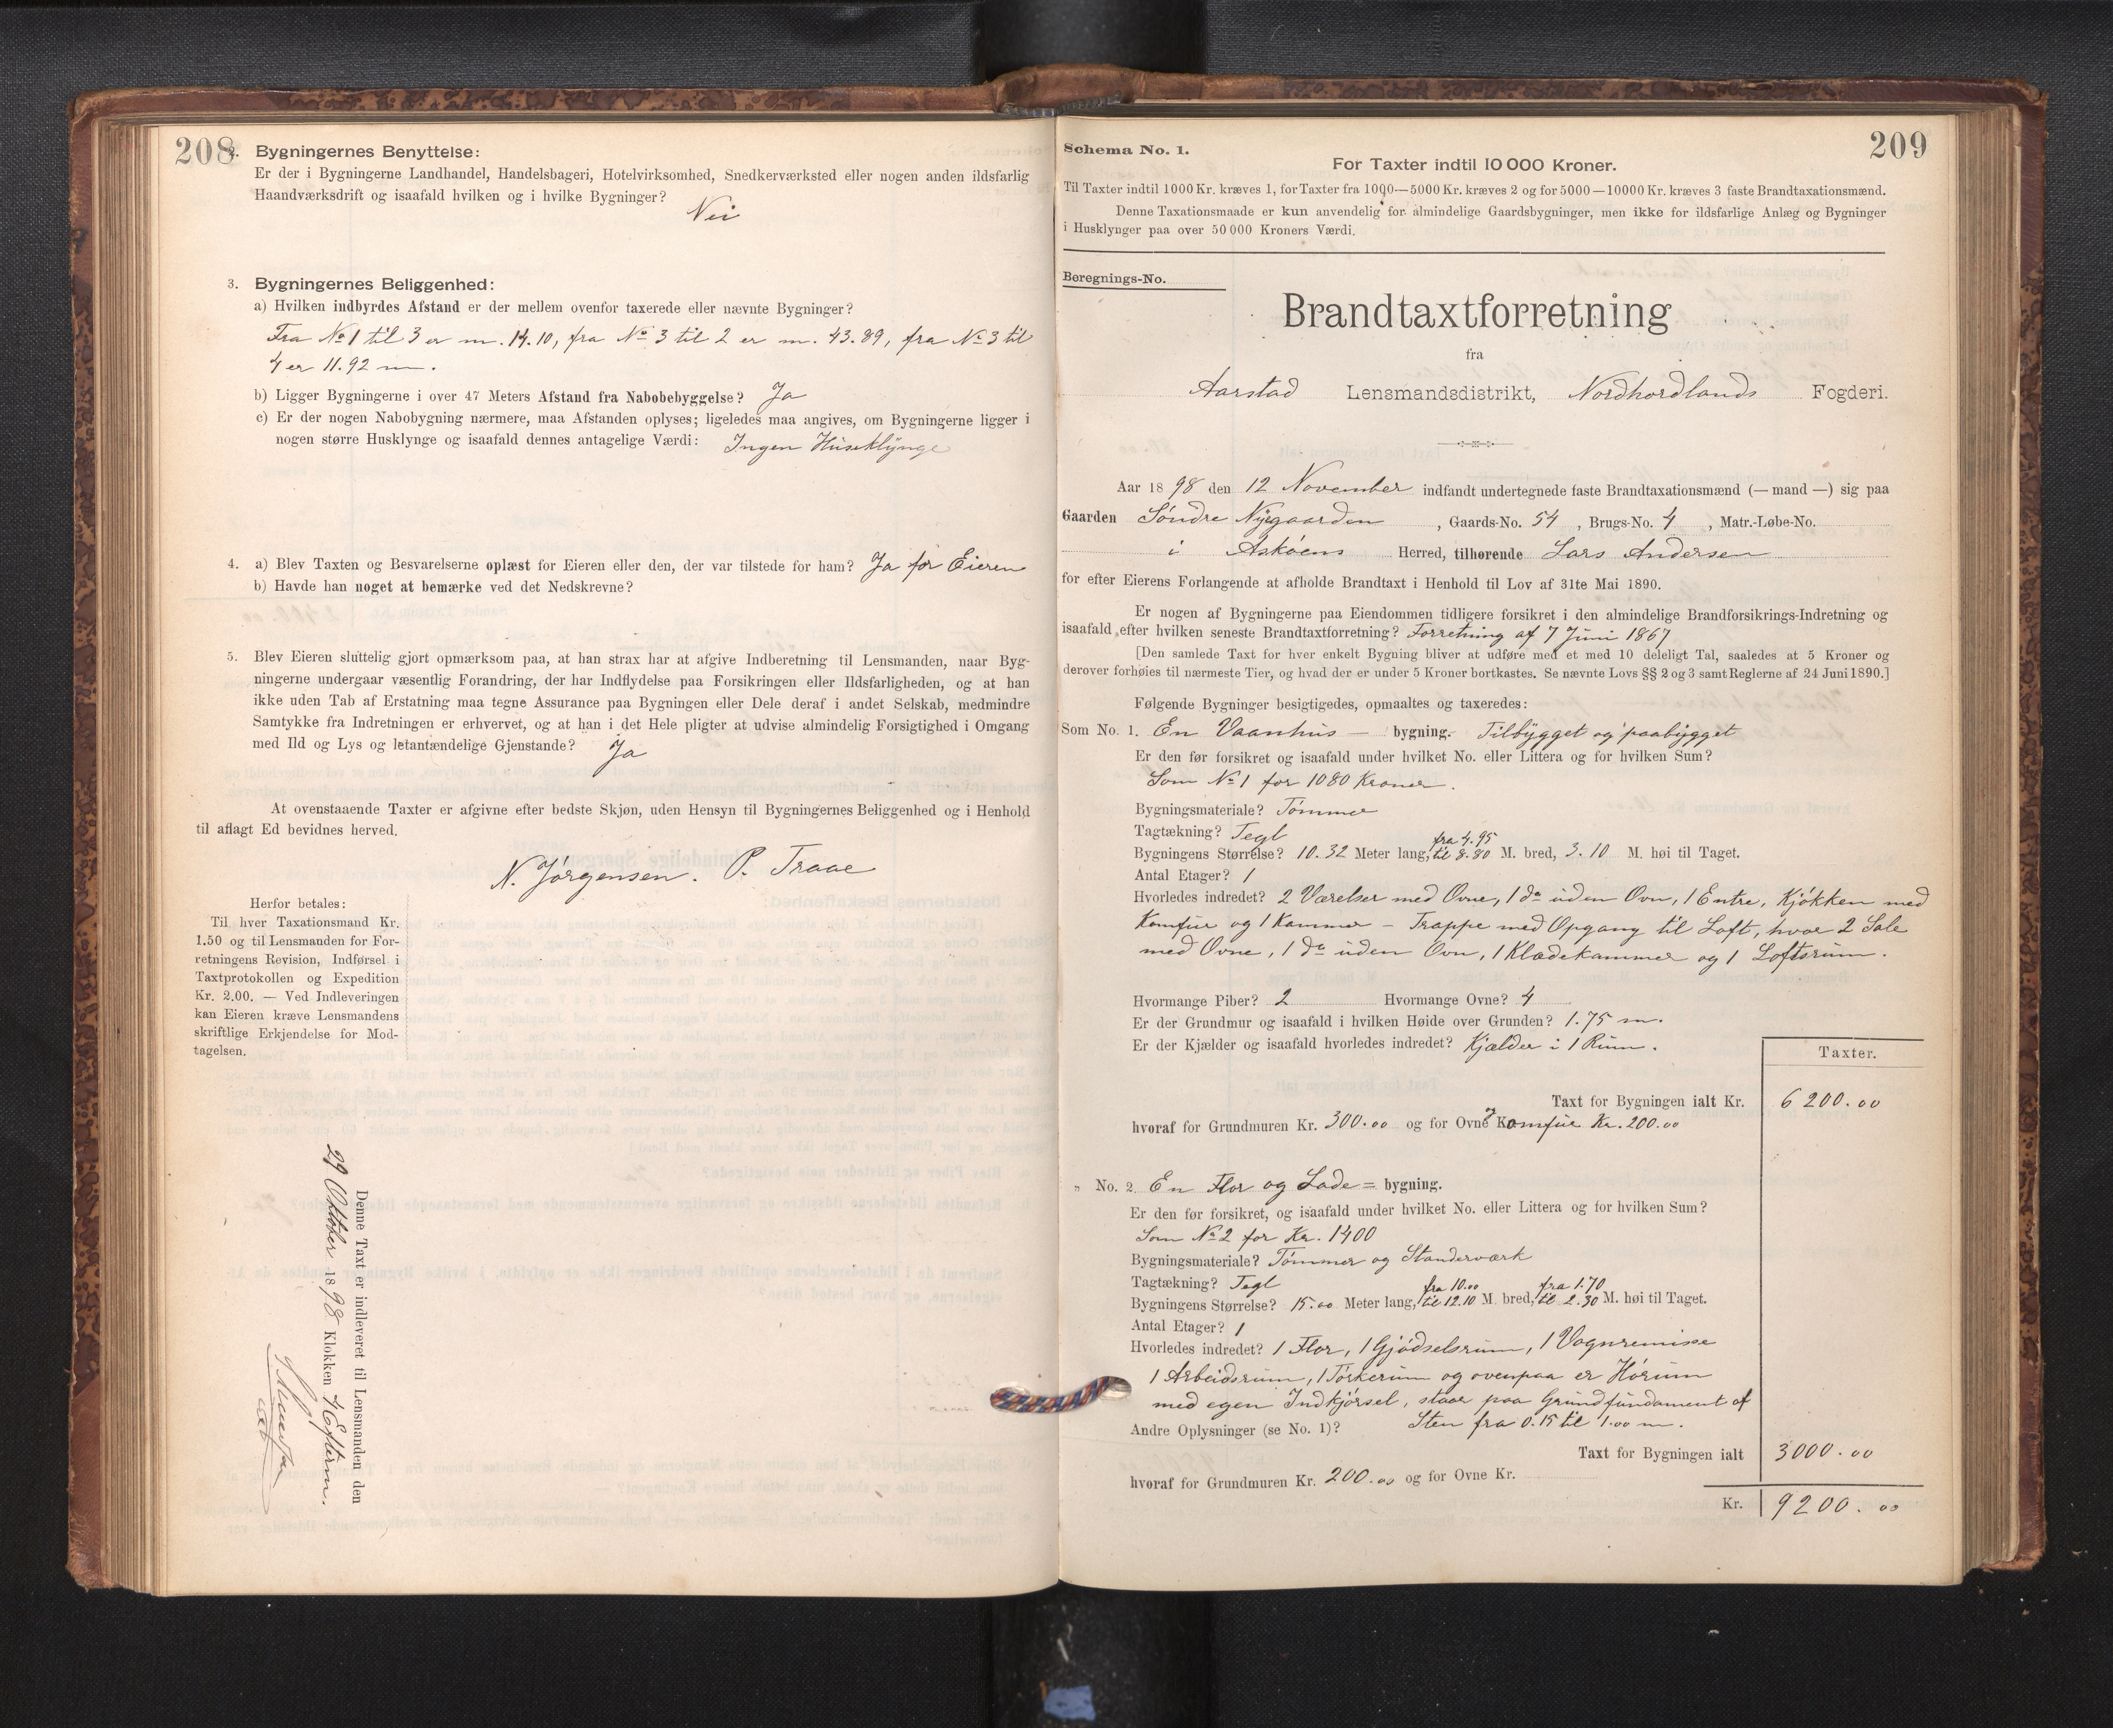 208
2. Bygningernes Benyttelse:
Er der i Bygningerne Landhandel, Handelsbageri, Hotelvirksomhed, Snedkerværksted eller nogen anden ildsfarlig
Haandværksdrift og isaafald hvilken og i hvilke Bygninger?
Nei
3. Bygningernes Beliggenhed:
a) Hvilken indbyrdes Afstand er der mellem ovenfor taxerede eller nævnte Bygninger?
Fra No 1 til 3 er m. 14.10, fra No 3 til 2 er m. 43.89, fra No 3 til
4 er 11.92 m.
b) Ligger Bygningerne i over 47 Meters Afstand fra Nabobebyggelse? Ja
c) Er der nogen Nabobygning nærmere, maa Afstanden oplyses; ligeledes maa angives, om Bygningerne ligger i
nogen større Husklynge og isaafald dennes antagelige Værdi: Ingen Huseklynge
4. a) Blev Taxten og Besvarelserne oplæst for Eieren eller den, der var tilstede for ham? Ja for Eieren
b) Havde han noget at bemærke ved det Nedskrevne?
5. Blev Eieren sluttelig gjort opmærksom paa, at han strax har at afgive Indberetning til Lensmanden, naar Byg-
ningerne undergaar væsentlig Forandring, der har Indflydelse paa Forsikringen eller Ildsfarligheden, og at han
ikke uden Tab af Erstatning maa tegne Assurance paa Bygningen eller Dele deraf i andet Selskab, medmindre
Samtykke fra Indretningen er erhvervet, og at han i det Hele pligter at udvise almindelig Forsigtighed i Omgang
med Ild og Lys og letantændelige Gjenstande? Ja
At ovenstaaende Taxter er afgivne efter bedste Skjøn, uden Hensyn til Bygningernes Beliggenhed og i Henhold
til aflagt Ed bevidnes herved.
N. Jørgensen. P. Traae
Herfor betales:
Til hver Taxationsmand Kr.
1.50 og til Lensmanden for For-
retningens Revision, Indførsel i
Taxtprotokollen og Expedition
Kr. 2.00. — Ved Indleveringen
kan Eieren kræve Lensmandens
skriftlige Erkjendelse for Mod-
tagelsen.
Denne Taxt er indleveret til Lensmanden den
29 Oktober 1898 Klokken 4 Efterm.
209
Schema No. 1.
For Taxter indtil 10 000 Kroner.
Til Taxter indtil 1000 Kr. kræves 1, for Taxter fra 1000—5000 Kr. kræves 2 og for 5000—10000 Kr. kræves 3 faste Brandtaxationsmænd.
Denne Taxationsmaade er kun anvendelig for almindelige Gaardsbygninger, men ikke for ildsfarlige Anlæg og Bygninger
i Husklynger paa over 50 000 Kroners Værdi.
Beregnings-No.
Brandtaxtforretning
fra
Aarstad Lensmandsdistrikt, Nordhordlands Fogderi.
Aar 1898 den 12 November indfandt undertegnede faste Brandtaxationsmænd (— mand —) sig paa
Gaarden Søndre Nygaarden, Gaards-No. 54, Brugs-No. 4, Matr.-Løbe-No.
i Askøens Herred, tilhørende Lars Andersen
for efter Eierens Forlangende at afholde Brandtaxt i Henhold til Lov af 31te Mai 1890.
Er nogen af Bygningerne paa Eiendommen tidligere forsikret i den almindelige Brandforsikrings-Indretning og
isaafald efter hvilken seneste Brandtaxtforretning? Forretning af 7 Juni 1867
[Den samlede Taxt for hver enkelt Bygning bliver at udføre med et med 10 deleligt Tal, saaledes at 5 Kroner og
derover forhøies til nærmeste Tier, og hvad der er under 5 Kroner bortkastes. Se nævnte Lovs §§ 2 og 3 samt Reglerne af 24 Juni 1890.]
Følgende Bygninger besigtigedes, opmaaltes og taxeredes:
Som No. 1. En Vaanhus — bygning. Tilbygget og paabygget
Er den før forsikret og isaafald under hvilket No. eller Littera og for hvilken Sum?
Som No 1 for 1080 Kroner.
Bygningsmateriale? Tømmer
Tagtækning? Tegl
Bygningens Størrelse? 10.32 Meter lang, fra 4.95 til 8.80 M. bred, 3.10 M. høi til Taget.
Antal Etager? 1
Hvorledes indredet? 2 Værelser med Ovne, 1 do uden Ovn, 1 Entre, Kjøkken med
Komfur og 1 Kammer – Trappe med Opgang til Loft, hvor 2 Sale
med Ovne, 1 do uden Ovn, 1 Klædekammer og 1 Loftsrum.
Hvormange Piber? 2 Hvormange Ovne? 4
Er der Grundmur og isaafald i hvilken Høide over Grunden? 1.75 m.
Er der Kjælder og isaafald hvorledes indredet? Kjælder i 1 Rum.
Taxter.
Taxt for Bygningen ialt Kr. 6200.00
hvoraf for Grundmuren Kr. 300.00 og for Ovne og Komfur Kr. 200.00
„ No. 2. En Flor og Lade = bygning.
Er den før forsikret, og isaafald under hvilket No. eller Littera og for hvilken Sum?
Som No 2 for Kr. 1400
Bygningsmateriale? Tømmer og Standerværk
Tagtækning? Tegl
Bygningens Størrelse? 15.00 Meter lang, fra 10.00 til 12.10 M bred, fra 1.70 til 2.30 M. høi til Taget.
Antal Etager? 1
Hvorledes indredet? 1 Flor, 1 Gjødselsrum, 1 Vognremisse
1 Arbeidsrum, 1 Tørkerum og ovenpaa er Hørum
med egen Indkjørsel, staar paa Grundfundament af
Andre Oplysninger (se No. 1)? Sten fra 0.15 til 1.00 m.
Taxt for Bygningen ialt 3000.00
hvoraf for Grundmuren Kr. 200.00 og for Ovne Kr.
Kr. 9200.00